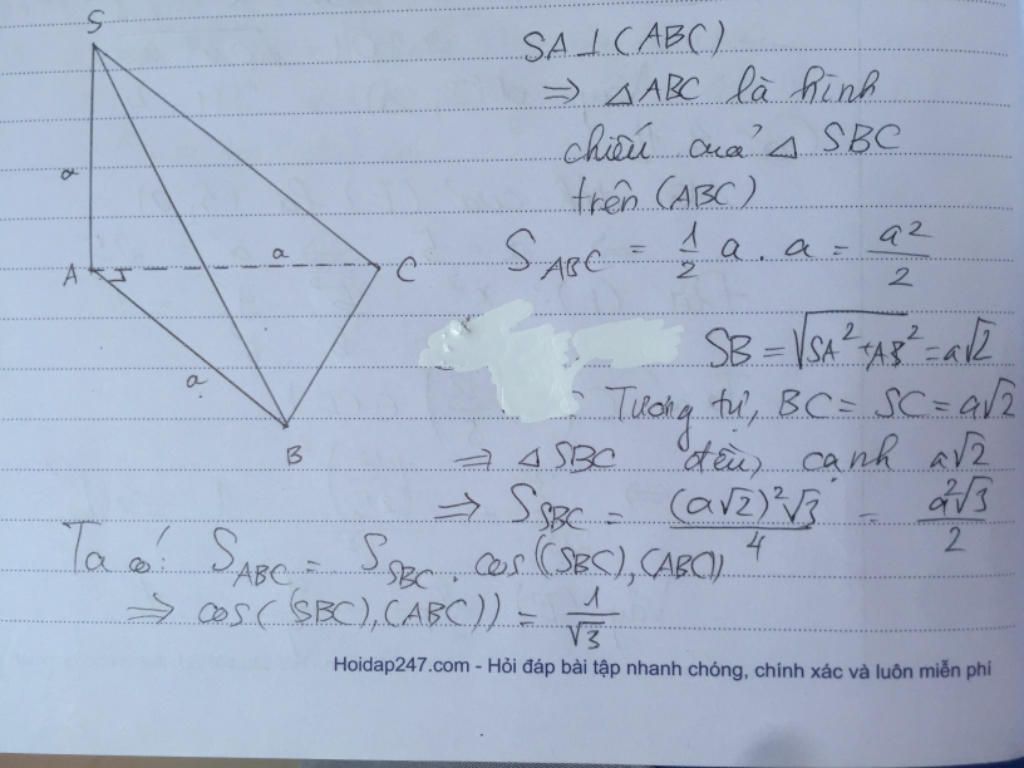 S
SA ⊥ (ABC)
⇒ △ ABC là hình
chiếu của △ SBC
trên (ABC)
a
A
a
C
a
B
S_ABC = 1/2 a . a = a²/2
SB = √(SA² + AB²) = a√2
Tương tự, BC = SC = a√2
⇒ △ SBC đều, cạnh a√2
⇒ S_SBC = (a√2)²√3/4 = a²√3/2
Ta có: S_ABC = S_SBC . cos((SBC), (ABC))
⇒ cos((SBC), (ABC)) = 1/√3
Hoidap247.com - Hỏi đáp bài tập nhanh chóng, chính xác và luôn miễn phí